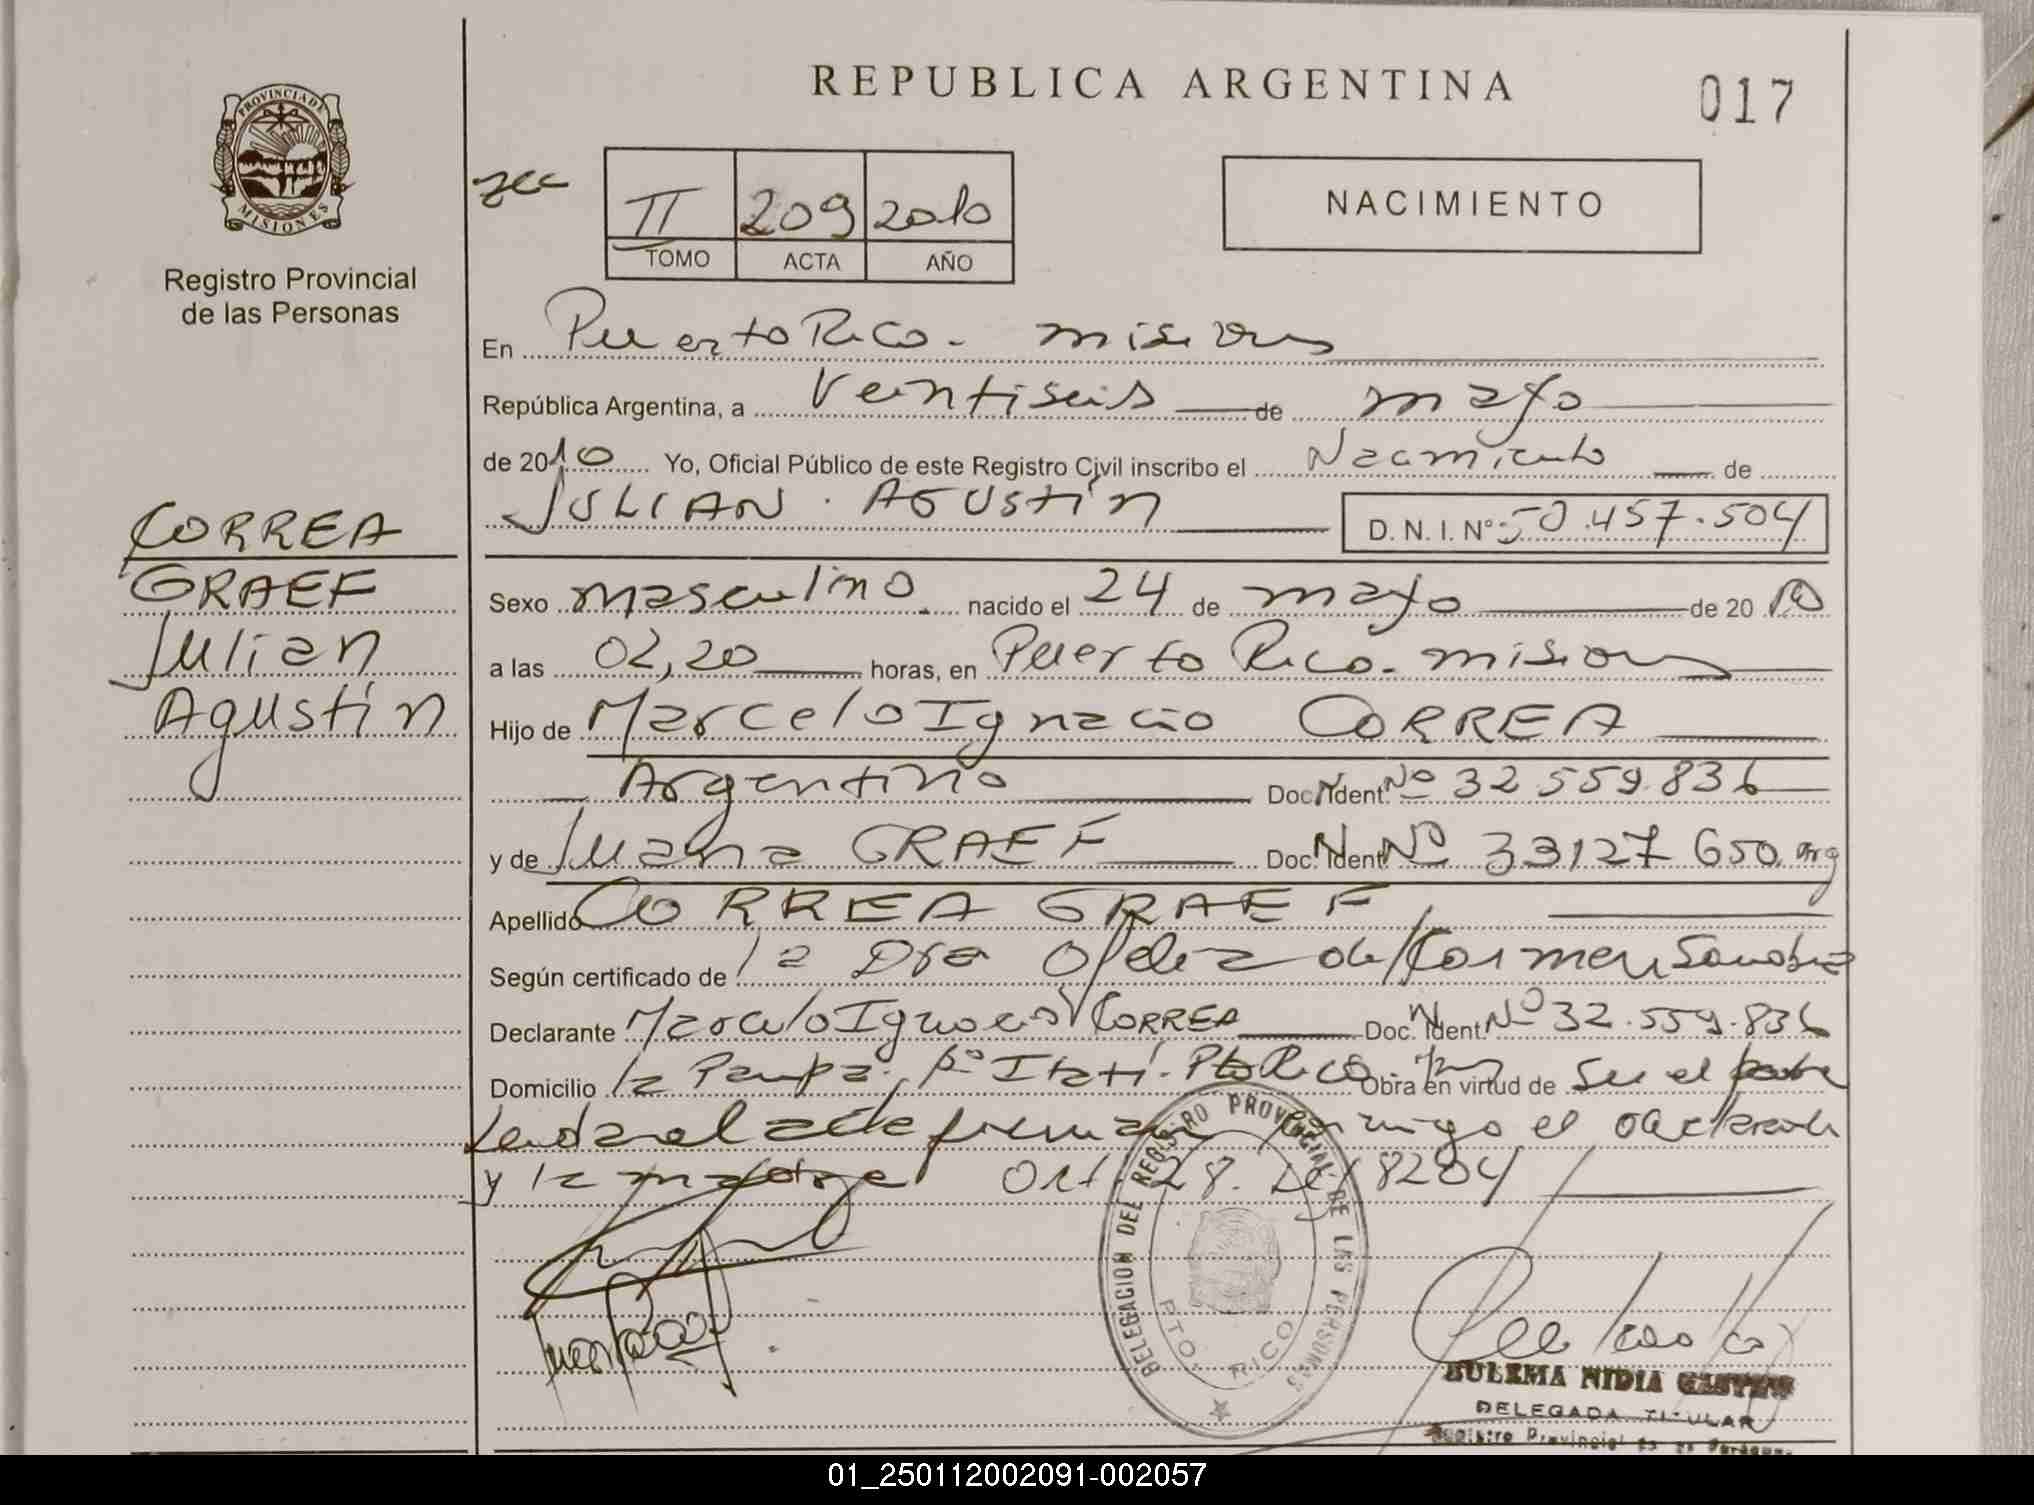 REPUBLICA ARGENTINA
017
PROVINCIA DE
MISIONES
Registro Provincial
de las Personas
II 209 2010
TOMO ACTA AÑO
NACIMIENTO
En Puerto Rico - Misiones
República Argentina, a Veintiseis de mayo
de 2010 Yo, Oficial Público de este Registro Civil inscribo el Nacimiento de
JULIAN AGUSTIN D.N.I. Nº 50.457.504
CORREA
GRAEF
Julian
Agustin
Sexo masculino nacido el 24 de mayo de 2010
a las 02,20 horas, en Puerto Rico - misiones
Hijo de Marcelo Ignacio CORREA
Argentino Doc. N Ident. Nº 32 559.836
y de Juana GRAEF Doc. N Ident. Nº 33127 650 arg
Apellido CORREA GRAEF
Según certificado de la Dra del Carmen
Declarante Marcelo Ignacio CORREA Doc. N Ident. Nº 32.559.836
Domicilio la Pampa. Bº Itatí - Pto Rico Obra en virtud de ser el padre
Leida el acta firman conmigo el declarante
y la madre Art. 28. Ley 8204
DELEGACION DEL REGISTRO PROVINCIAL DE LAS PERSONAS
PTO. RICO
ZULEMA NIDIA
DELEGADA TITULAR
Registro Provincial de las Personas
01_250112002091-002057